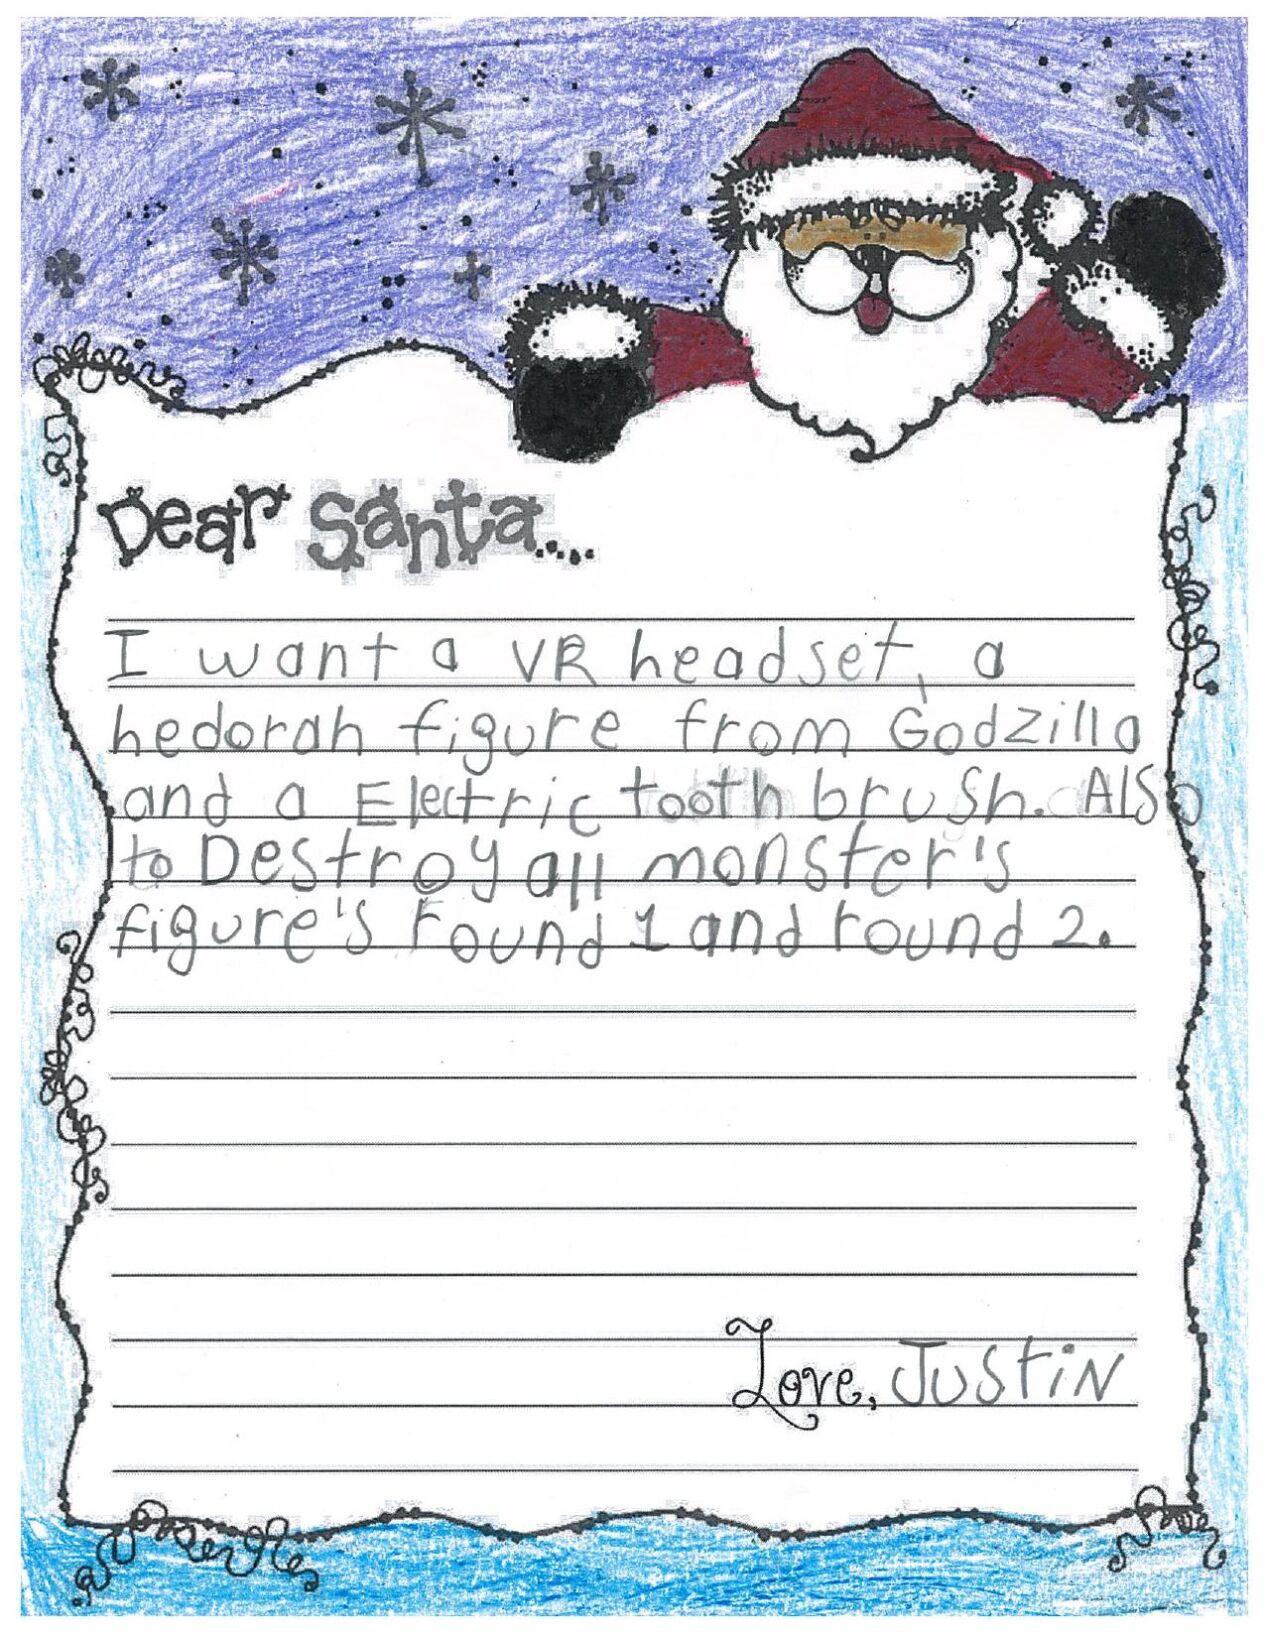 Dear Santa....
I want a VR headset, a
hedorah figure from Godzilla
and a Electric tooth brush. Also
to Destroy all monster's
figure's round 1 and round 2.
Love, Justin